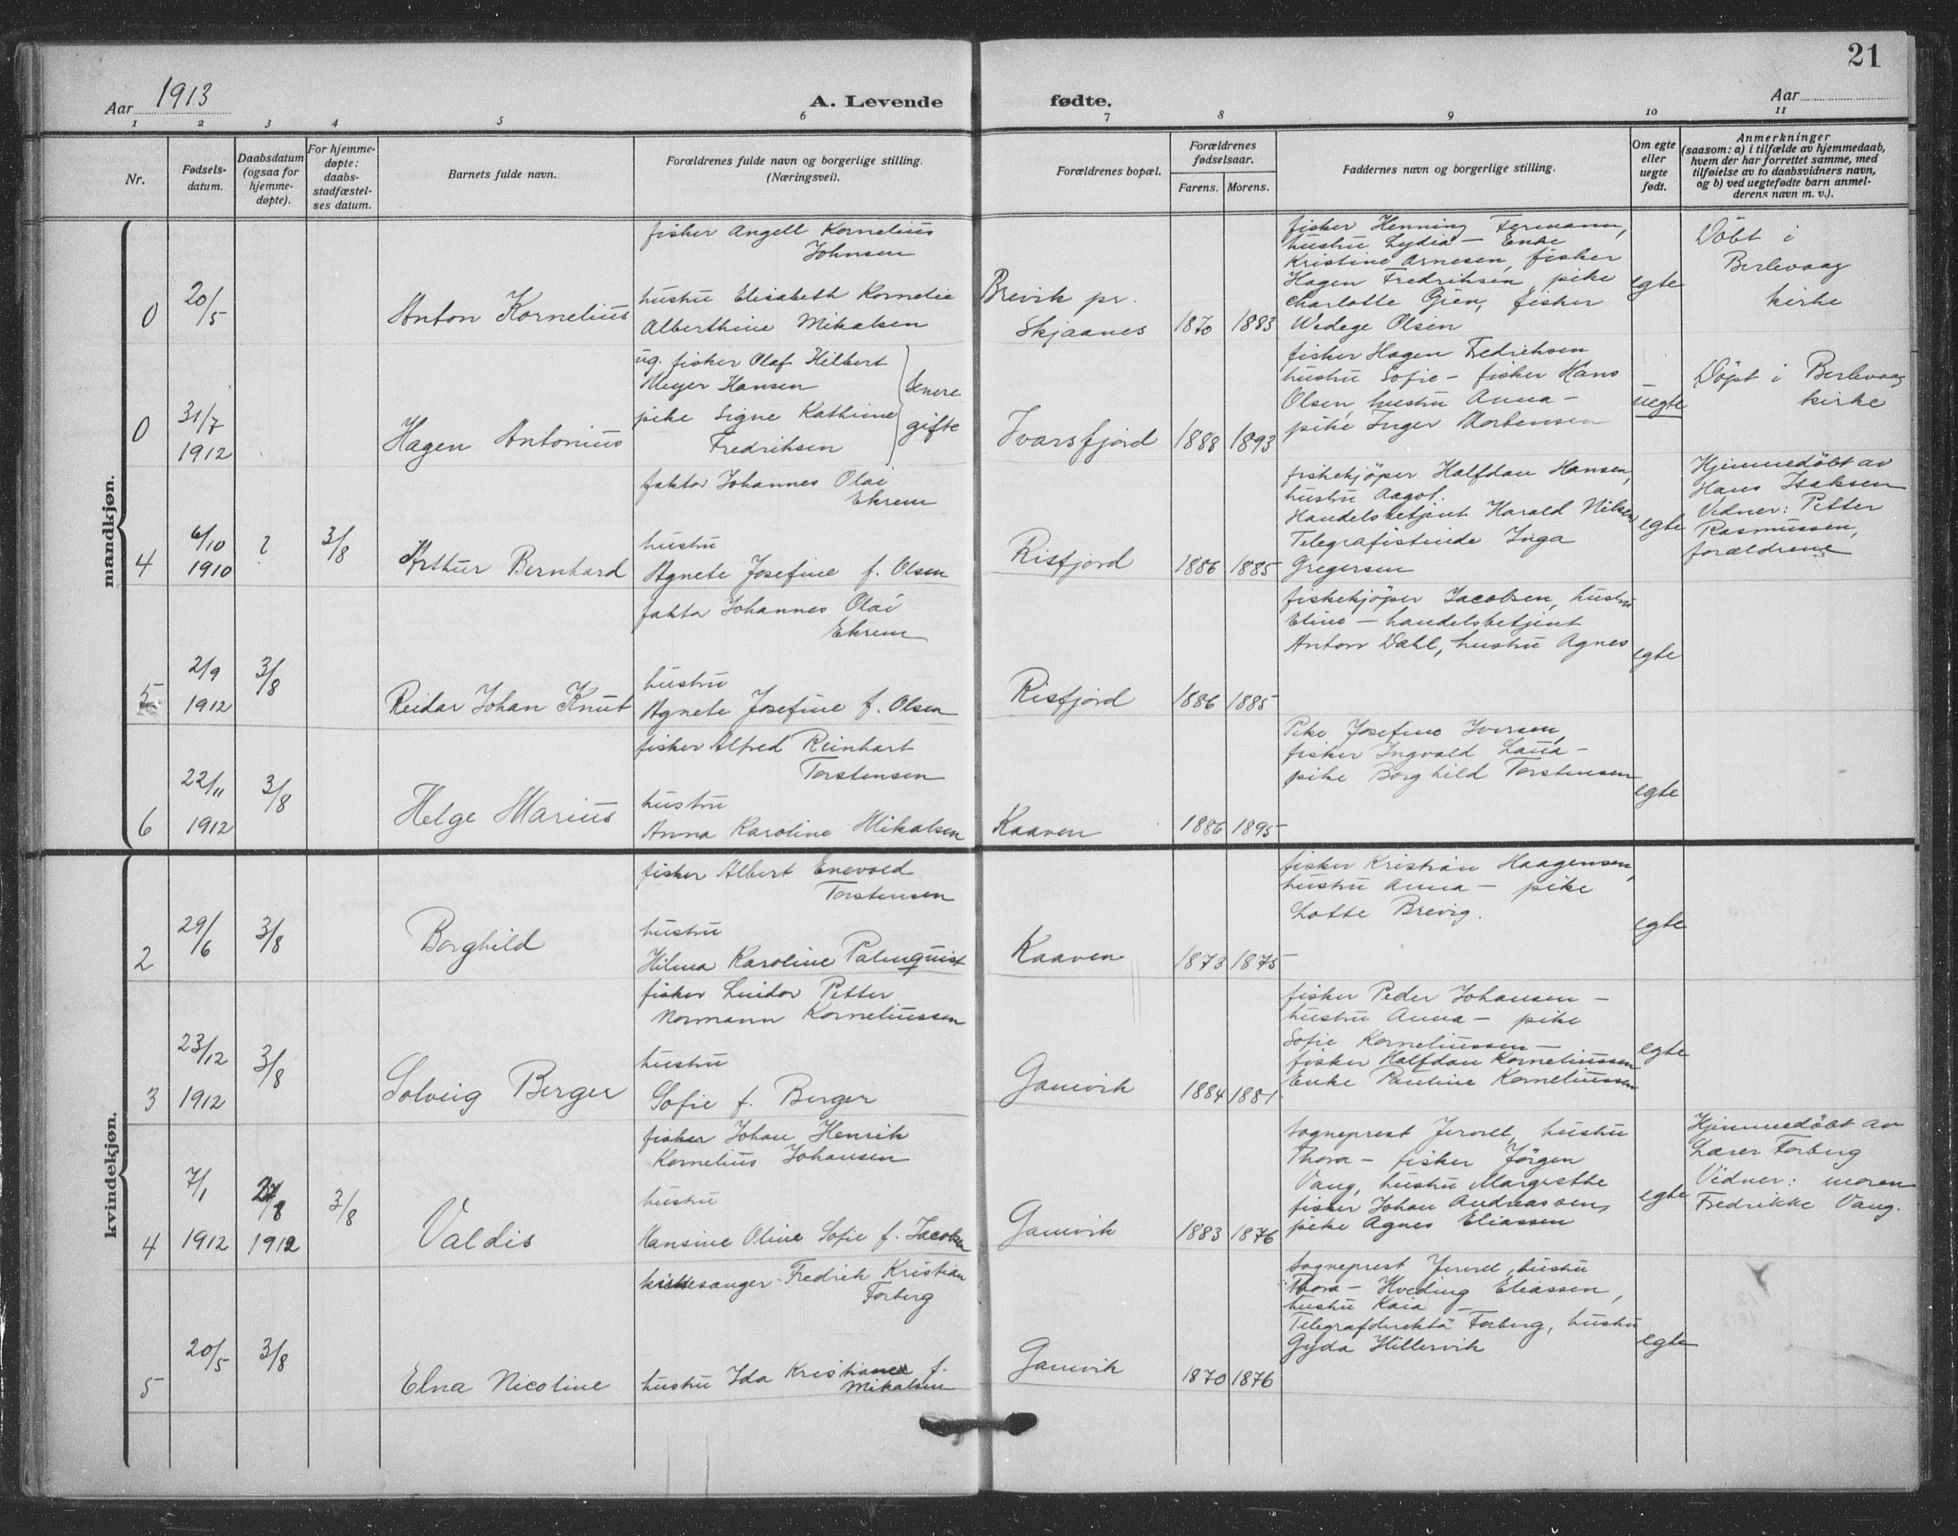 21
Aar 1913
A. Levende fødte.
Aar
1 2 3 4 5 6 7 8 9 10 11
Nr.
Fødsels-
datum.
Daabsdatum
(ogsaa for
hjemme-
døpte).
For hjemme-
døpte:
daabs-
stadfæstel-
ses datum.
Barnets fulde navn.
Forældrenes fulde navn og borgerlige stilling.
(Næringsvei).
Forældrenes bopæl.
Forældrenes
fødselsaar.
Farens. Morens.
Faddernes navn og borgerlige stilling.
Om egte
eller
uegte
født.
Anmerkninger
(saasom: a) i tilfælde av hjemmedaab,
hvem der har forrettet samme, med
tilføielse av to daabsvidners navn,
og b) ved uegtefødte barn anmel-
derens navn m. v.).
mandkjøn.
0
20/5
Anton Kornelius
fisker Angell Kornelius
Johnsen
hustru Elisabeth Kornelie
Alberthine Mikalsen
Brevik pr.
Skjaanes
1870 1883
fisker Henning Fermann,
hustru Lydia – Enke
Kristine Arnesen, fisker
Hagen Fredriksen, pike
Charlotte Gien, fisker
Wedege Olsen
egte
Döbt i
Berlevaag
kirke
0
31/7
1912
Hagen Antonius
ug. fisker Olaf Hilbert
Meyer Hansen
pike Signe Kathrine
Fredriksen
senere
gifte
Ivarsfjord
1888 1893
fisker Hagen Fedriksen
hustru Sofie – fisker Hans
Olsen, hustru Anna –
pike, Inger Mortensen
uegte
Döpt i Berlevaag
kirke
4
6/10
1910
?
3/8
Arthur Bernhard
faktor Johannes Olai
Ekrem
hustru
Agnete Josefine f. Olsen
Risfjord
1886 1885
fiskekjöper Halfdan Hansen,
hustru Aagot.
Handelsbetjent Harald Nilsen
Telegrafistinde Inga
Gregersen
egte
Hjemmedöbt av
Hans Isaksen
Vidner: Petter
Rasmussen,
forældrene
5
2/9
1912
3/8
Reidar Johan Knut
faktor Johannes Olai
Ekrem
hustru
Agnete Josefine f. Olsen
Risfjord
1886 1885
fiskekjöper Jacobsen, hustru
Eline – handelsbetjent
Anton Dahl, hustru Agnes
egte
6
22/11
1912
3/8
Helge Marius
fisker Alfred Reinhart
Torstensen
hustru
Anna Karoline Mikalsen
Kaaven
1886 1895
Pike Josefine Iversen,
fisker Ingvald –
pike Borghild Torstensen
egte
kvindekjøn.
2
29/6
3/8
Borghild
fisker Albert Enevold
Torstensen
hustru
Hilma Karoline Palmquist
Kaaven
1873 1875
fisker Kristian Haagensen,
hustru Anna – pike
Lotte Brevig.
egte
3
23/12
1912
3/8
Solveig Berger
fisker Petter
Normann Korneliussen
hustru
Sofie f. Berger
Gamvik
1884 1881
fisker Peder Johansen –
hustru Anna – pike
Sofie Korneliussen –
fisker Halfdan Korneliussen
Enke Pauline Korneliussen
egte
4
7/1
1912
1912
3/8
Valdis
fisker Johan Henrik
Kornelius Johansen
hustru
Hansine Oline Sofie f. Jacobsen
Gamvik
1883 1876
sogneprest hustru
Thora – fisker Jörgen
Vang, hustru Margrethe
fisker Johan Andreassen,
pike Agnes Eliassen
egte
Hjemmedöbt av
Lærer Forberg
Vidner: moren
Fredrikke Vang.
5
20/5
3/8
Elna Nicoline
kirkesanger Fredrik Kristian
Forberg
hustru Ida Kristiane f.
Mikalsen
Gamvik
1870 1876
sogneprest hustru
Thora – Hveding Eliassen,
hustru Kaia –
Forberg, hustru
Gyda Hillervik
egte